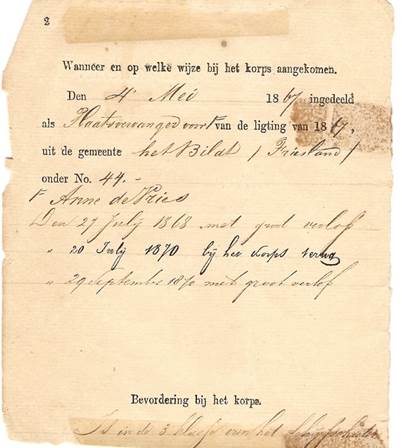 2
Wanneer en op welke wijze bij het korps aangekomen.
Den 4e Mei 1867 ingedeeld
als Plaatsvervanger voor F van de ligting van 1867,
uit de gemeente het Bildt (Friesland)
onder No. 44.-
F Anne de Vries
Den 27 July 1868 met groot verlof
" 20 July 1870 bij het Korps terug
" 29 September 1870 met groot verlof
Bevordering bij het korps.
Is in de 3e klasse van het